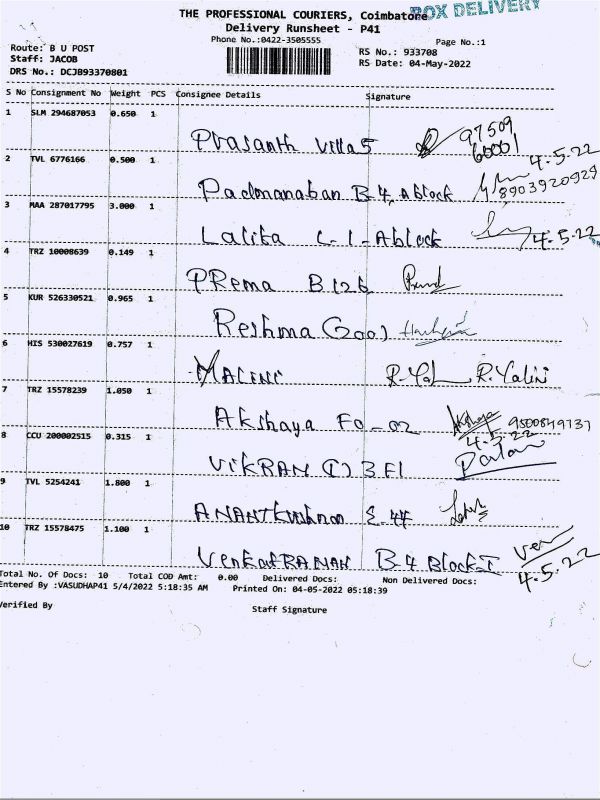 THE PROFESSIONAL COURIERS, Coimbatore
BOX DELIVERY
Delivery Runsheet - P41
Phone No.:0422-3505555
Page No.:1
Route: B U POST
Staff: JACOB
DRS No.: DCJB93370801
RS No.: 933708
RS Date: 04-May-2022
S No Consignment No Weight PCS Consignee Details Signature
1 SLM 294687053 0.650 1
Prasanth Villa 5 97509
60001
2 TVL 6776166 0.500 1 4.5.22
Padmanaban B4, A block 8903920929
3 MAA 287017795 3.000 1
Lalita L-1-A block 4.5.22
4 TRZ 10008639 0.149 1
PRema B 126
5 KUR 526330521 0.965 1
Reshma (2001
6 HIS 530027619 0.757 1
MALINI R. Yalini
7 TRZ 15578239 1.050 1
Akshaya F0-02 Akshaya 9500849137
4.5.22
8 CCU 200002515 0.315 1
VIKRAM (1) 3 F1
9 TVL 5254241 1.800 1
ANANTKrishnan E-44
10 TRZ 15578475 1.100 1
VenkatRAMAN B4 Block-I Ven
4.5.22
Total No. Of Docs: 10 Total COD Amt: 0.00 Delivered Docs: Non Delivered Docs:
Entered By :VASUDHAP41 5/4/2022 5:18:35 AM Printed On: 04-05-2022 05:18:39
Verified By Staff Signature